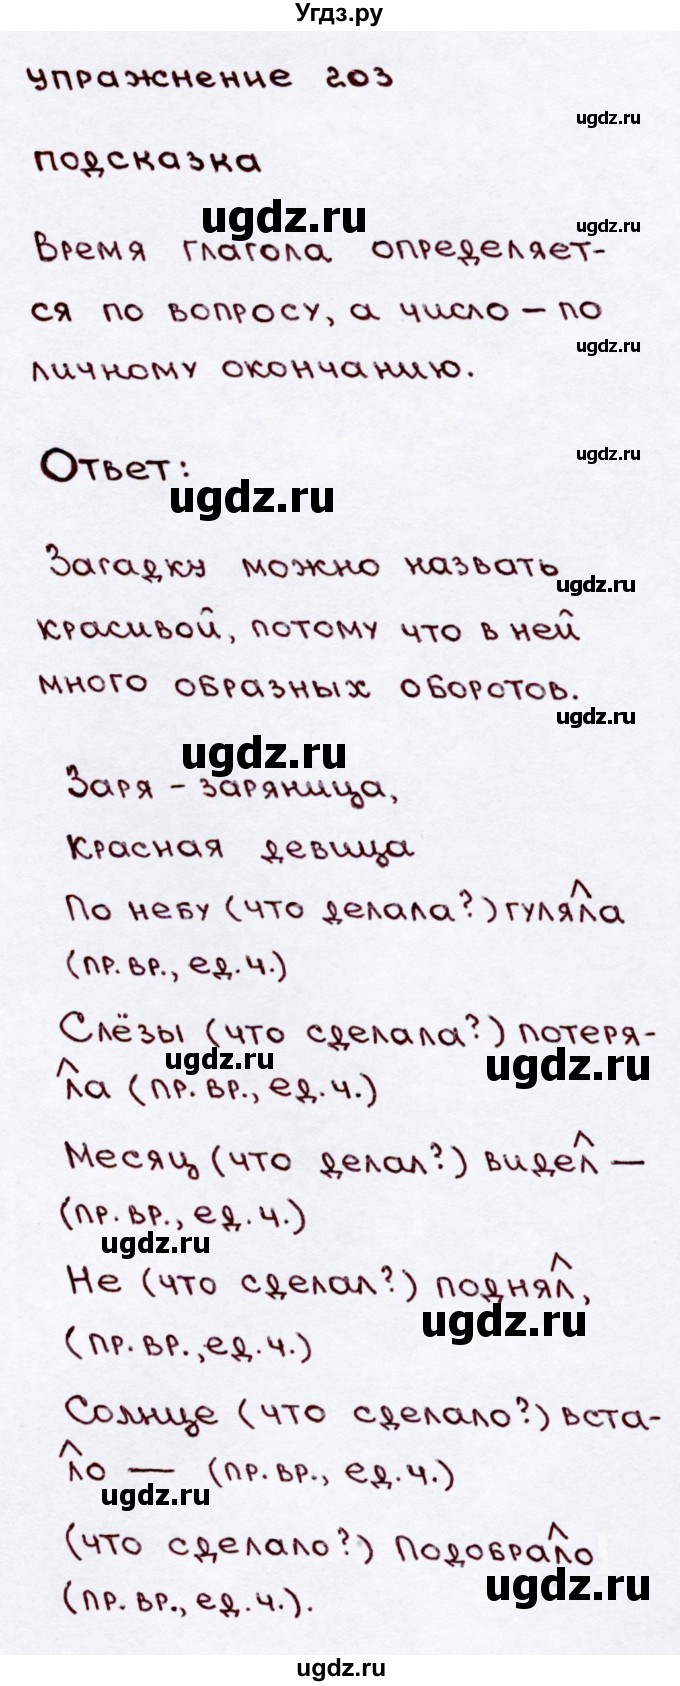 Угдз.ру
упражнение 203
ugdz.ru
подсказка
ugdz.ru
ugdz.ru
Время глагола определяет-
ся по вопросу, а число – по
ugdz.ru
личному окончанию.
Ответ:
ugdz.ru
ugdz.ru
Загадку можно назвать
ugdz.ru
красивой, потому что в ней
много образных оборотов.
ugdz.ru
ugdz.ru
Заря - заряница,
Красная девица
По небу (что делала?) гуляла
(пр. вр., ед. ч.)
Слёзы (что сделала?) потеря-
ugdz.ru
ugdz.ru
ла (пр. вр., ед. ч.)
Месяц (что делал?) видел —
(пр. вр., ед. ч.)
ugdz.ru
Не (что сделал?) поднял,
ugdz.ru
(пр. вр., ед. ч.)
Солнце (что сделало?) вста-
ло — (пр. вр., ед. ч.)
ugdz.ru
(что сделало?) подобрало
ugdz.ru
(пр. вр., ед. ч.).
ugdz.ru